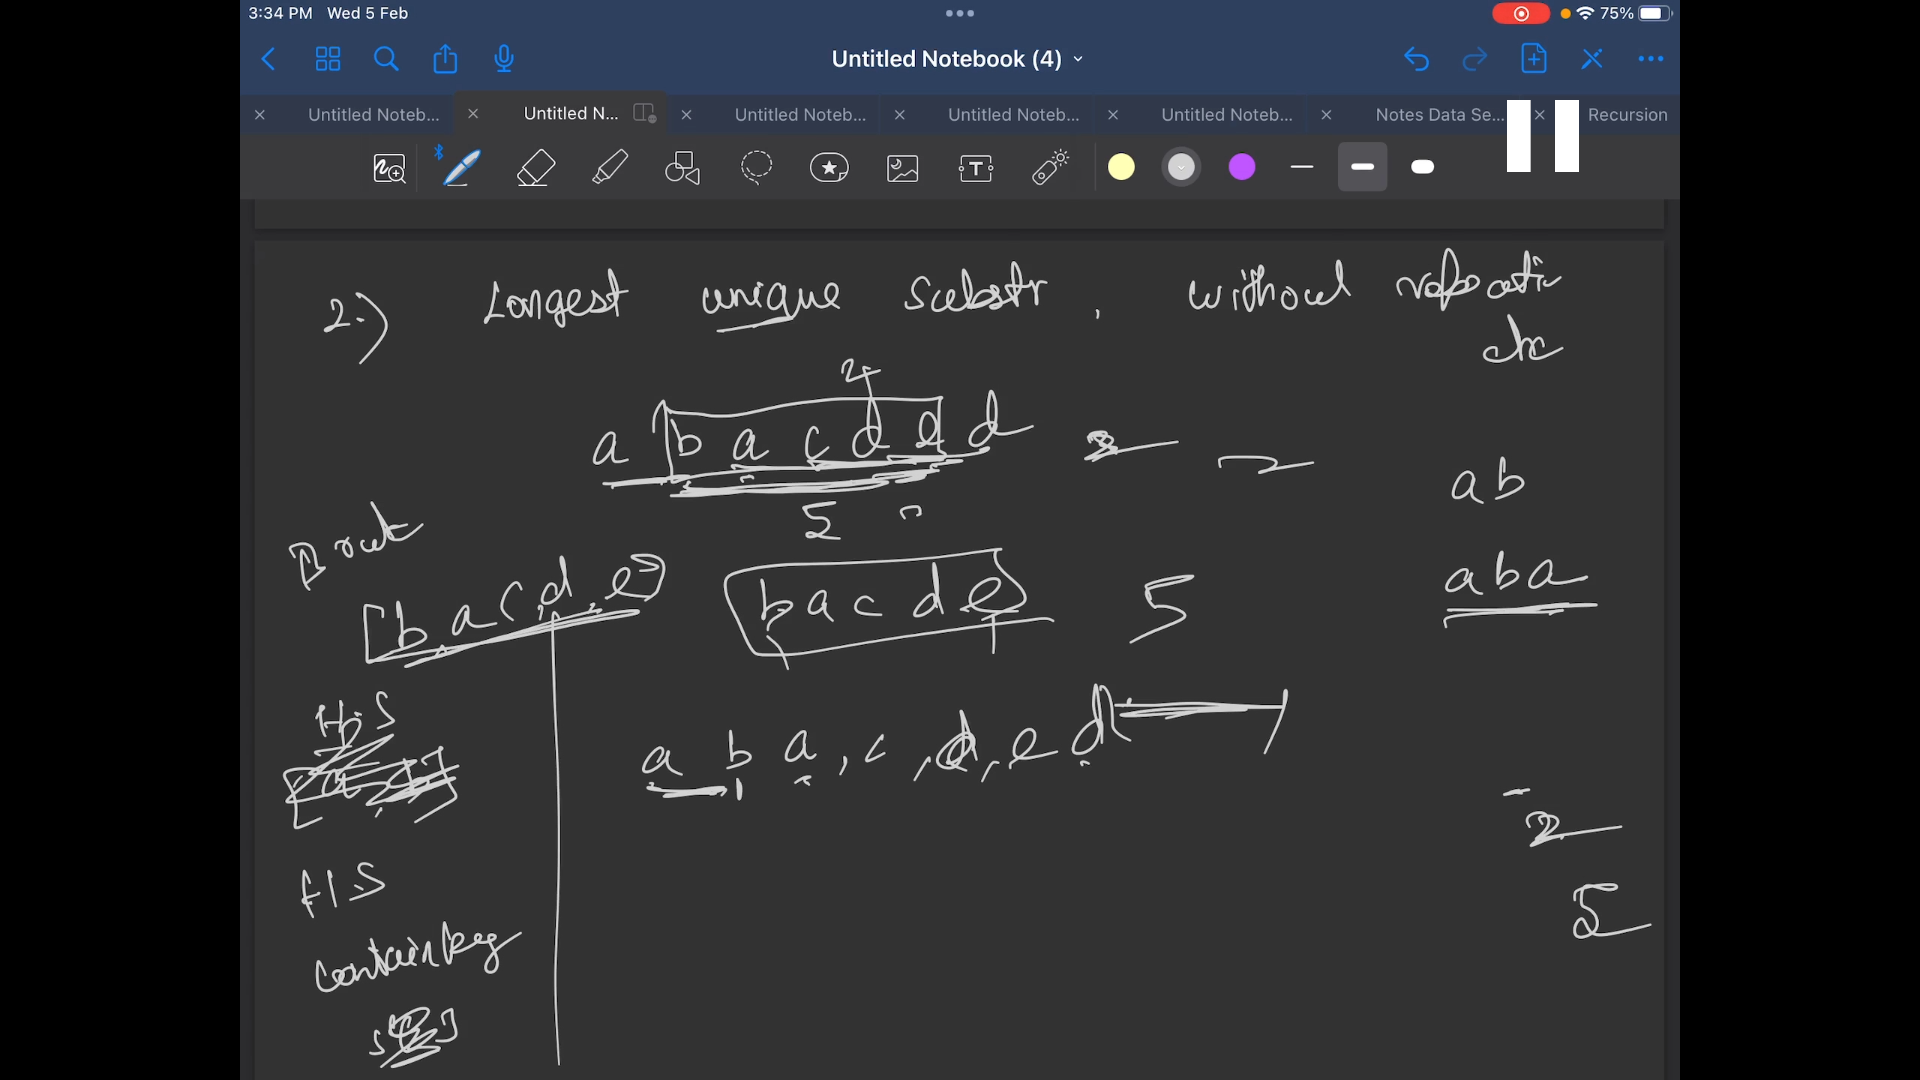 3:34 PM Wed 5 Feb
75%
Untitled Notebook (4)
Untitled Noteb...
Untitled N...
Untitled Noteb...
Untitled Noteb...
Untitled Noteb...
Notes Data Se...
Recursion
2.) Longest unique Substr, without
a b a c d e d
5
ab
[b, a c, d, e]
b a c d e 5
aba
H.S
a b a, c, d, e d
2
H.S
5
contain key